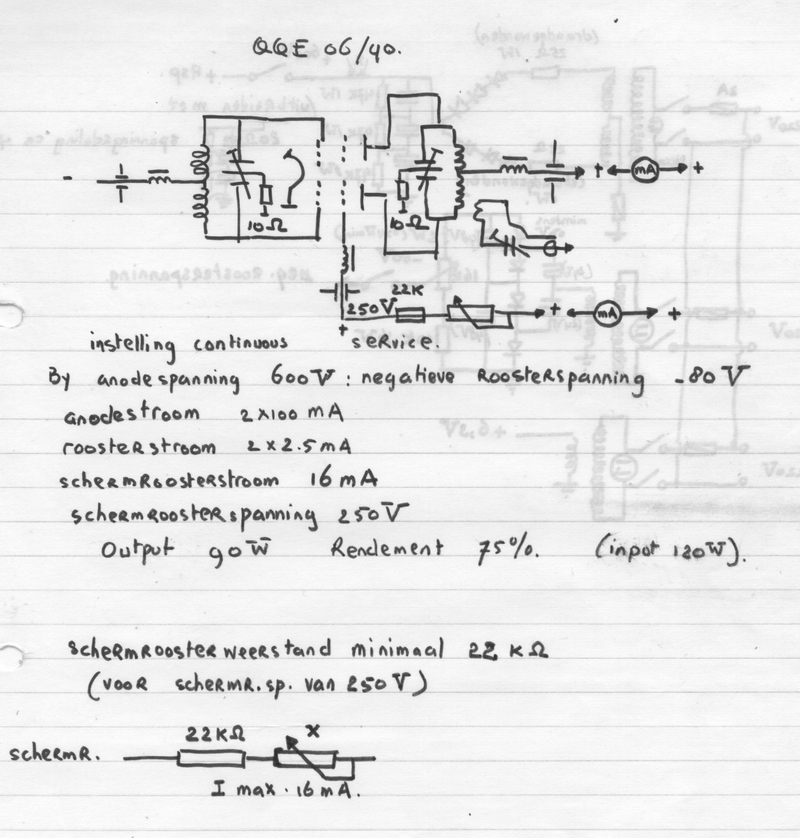 QQE 06/40.
-
10Ω
10Ω
+ mA +
22K
250V
+ mA +
+
instelling continuous service.
By anodespanning 600V : negatieve roosterspanning -80V
anodestroom 2x100 mA
roosterstroom 2x2.5mA
schermroosterstroom 16mA
schermroosterspanning 250V
Output 90W Rendement 75%. (input 120W).
schermroosterweerstand minimaal 22 KΩ
(voor schermr.sp. van 250V)
22KΩ x
schermR.
I max. 16mA.